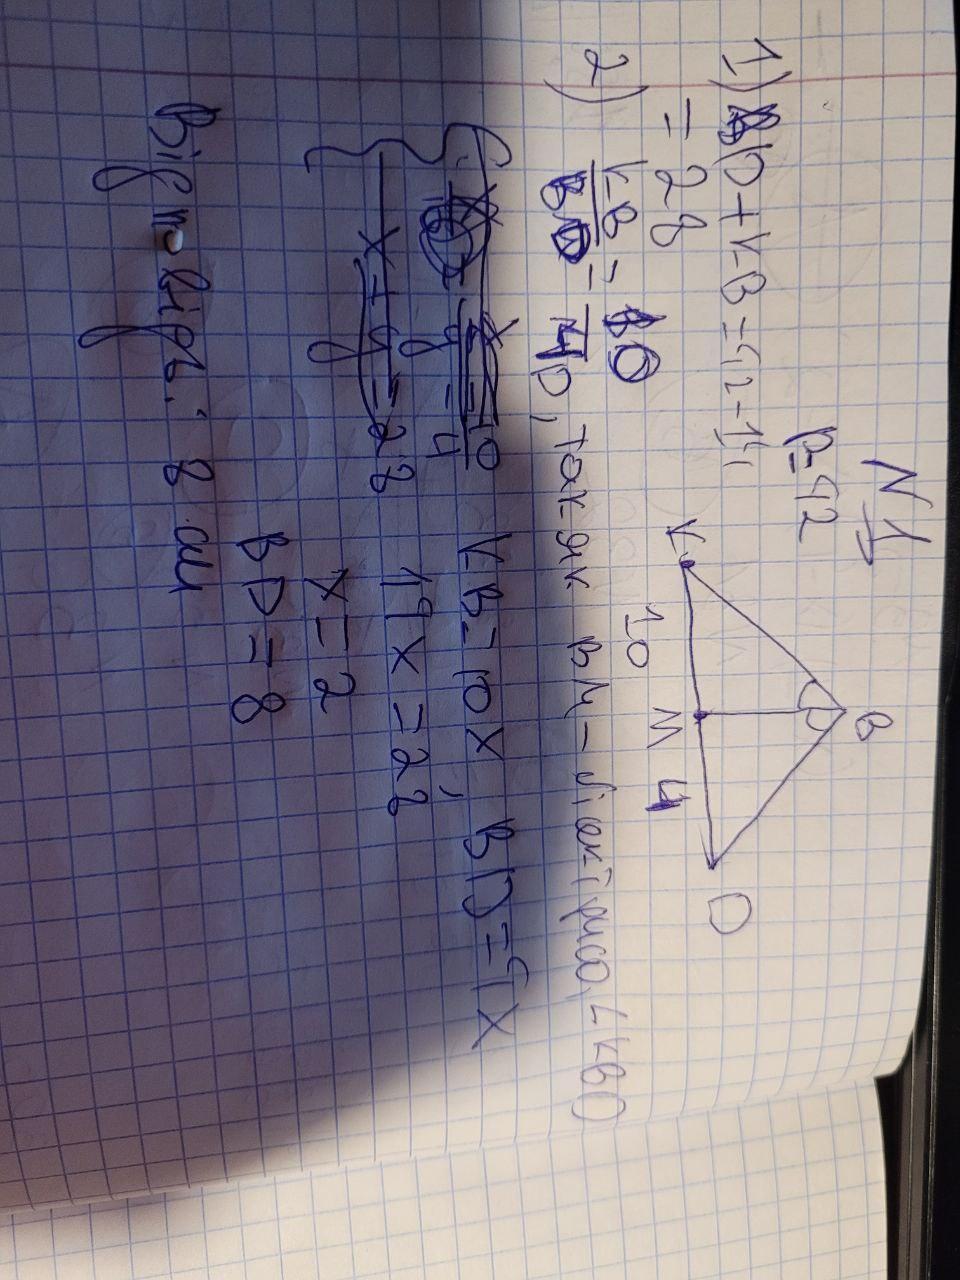 N 1
p=42
B
K
10
M
4
D
1) BD+KB=42-14
=28
2) KB/BD = KM/MD, так як BM – бісектриса, ∠KBD
KB=10x, BD=4x
14x=28
x+y=28
x=2
BD=8
Відповідь: 8 см